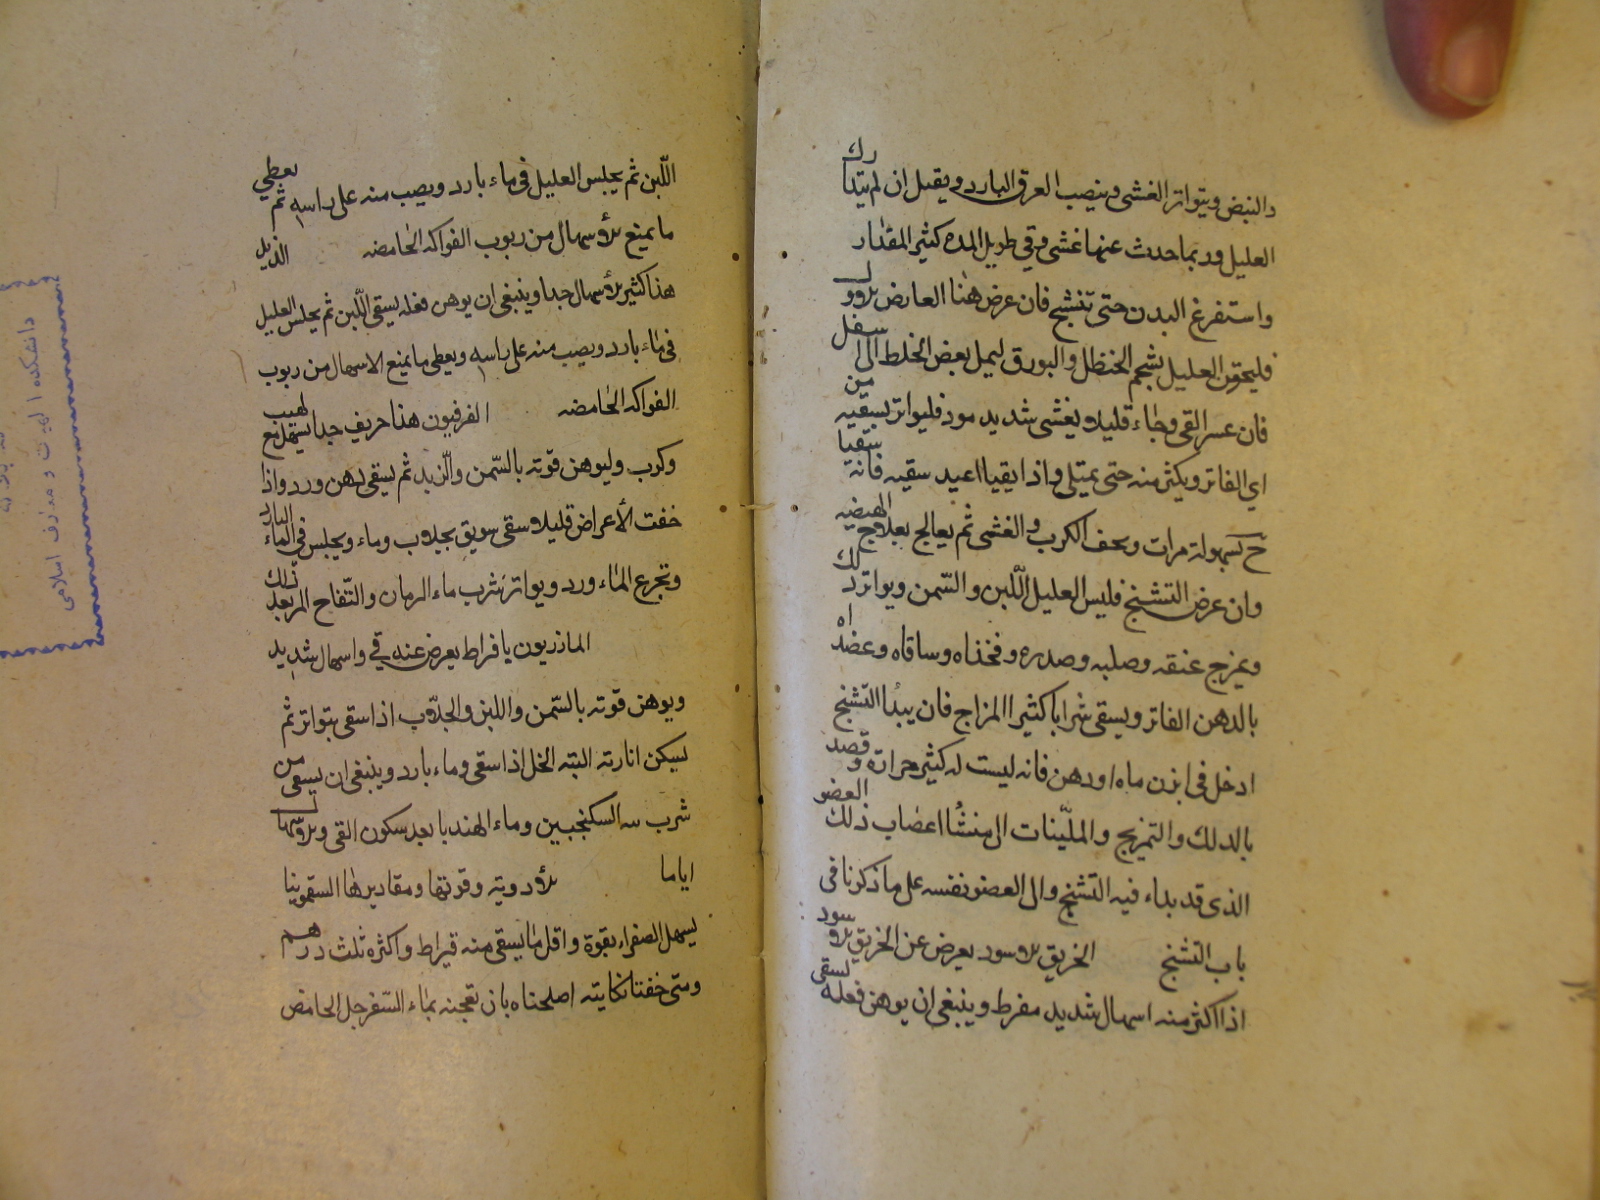 د النبض ويتواتر الغشى وينصب العرق البارد ويقبل ان لم يتدارك
العليل وربما حدث عنها غشى وقى طويل المدة كثير المقدار
واستفرغ البدن حتى تتشنج فان عرض هذا العارض
فليحقن العليل بشحم الحنظل والبورق ليميل بعض الخلط الى اسفل
فان عسر القى وجاء قليلا ويغشى شديد مود فليواتر بسقيه من
اي الفاتر ويكثر منه حتى يمتلى واذا يقيا اعيد سقيه فانه يتقيا
ح بسهولة مرات ويخف الكرب والغشى ثم يعالج بعلاج الهيضه
وان عرض التشنج فليس العليل اللبن والسمن ويواتر ذلك
ويمزج عنقه وصلبه وصدره وفخذاه وساقاه وعضداه
بالدهن الفاتر ويسقى شرابا كثير المزاج فان يبدا التشنج
ادخل فى ابزن ماء او دهن فانه ليست له كثير حرارة وقصد
بالدلك والتمزيج والملينات الى منشأ اعصاب ذلك العضو
الذى قد بداء فيه التشنج والى العضو نفسه على ما ذكرنا فى
باب التشنج الخربق الاسود يعرض عن الخربق الاسود
اذا اكثر منه اسهال شديد مفرط وينبغى ان يوهن فعله بسقى
اللبن ثم يجلس العليل فى ماء بارد ويصب منه على راسه ثم يعطى
ما يمنع الاسهال من ربوب الفواكه الحامضه
هذا كثير الاسهال جدا وينبغى ان يوهن فعله يسقى اللبن ثم يجلس العليل
فى ماء بارد ويصب منه على راسه ويعطى ما يمنع الاسهال من ربوب
الفواكه الحامضه الفرفيون هذا حريف جدا لهيب
وكرب وليوهن قوته بالسمن والزبد ثم يسقى دهن ورد واذا
خفت الأعراض قليلا سقى سويق بجلاب وماء ويجلس فى الماء البارد
وتجرع الماء ورد ويواتر شرب ماء الرمان والتفاح المز بعد ذلك
الماذريون يافراط يعرض عنه قى واسهال شديد
ويوهن قوته بالسمن واللبن والجلاب اذا سقى بتواتر ثم
ليسكن اثارته البته الخل اذا سقى وماء بارد وينبغى ان يسقى من
شرب السكنجبين وماء الهندبا بعد سكون القى والاسهال
اياما الادوية وقوتها ومقاديرها السقمونيا
يسهل الصفراء بقوة واقل ما يسقى منه قيراط واكثره ثلث درهم
ومتى خفنا نكايته اصلحناه بان نعجنه بماء السفرجل الحامض
دانشكده الهيات و معارف اسلامى